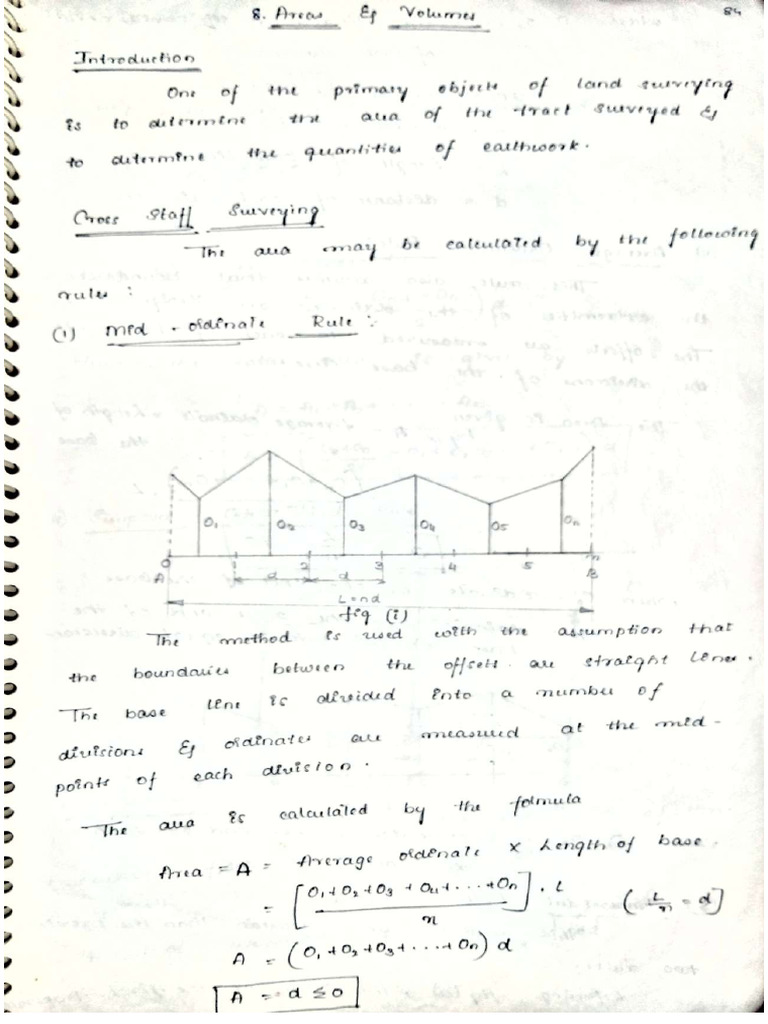 8. Areas & Volumes 84
Introduction
One of the primary objects of land surveying
is to determine the area of the tract surveyed &
to determine the quantities of earthwork.
Cross Staff Surveying
The area may be calculated by the following
rules :
(1) Mid-ordinate Rule :-
O1 O2 O3 O4 O5 On
0 1 2 3 4 5 n
A d d B
L = nd
fig (i)
The method is used with the assumption that
the boundaries between the offsets are straight lines.
The base line is divided into a number of
divisions & ordinates are measured at the mid-
points of each division.
The area is calculated by the formula
Area = A = Average ordinate x Length of base
= [O1+O2+O3+O4+...+On / n] . L (L/n = d]
A = (O1+O2+O3+...+On) d
A = d ≤ 0